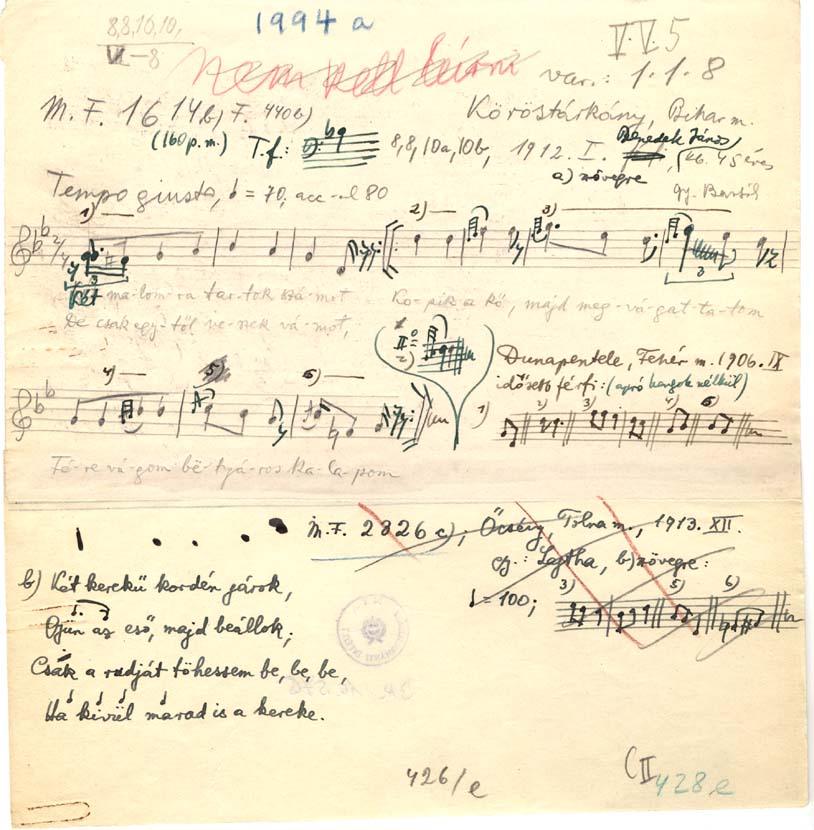 8,8,10,10,
1994 a
V.V.5
VI–8
Nem kell leírni
var.: 1.1.8
M.F. 1614b) F. 440b)
Köröstárkány, Bihar m.
(160 p.m.)
T.f.:
8,8,10a,10b, 1912. I.
Benedek János, kb. 45 éves
a) szövegre
gy. Bartók
Tempo giusto, = 70. acc-al 80
1) 2) 3)
2/4
3 3
Két ma-lom-ra tar-tok szá-mot
Ko-pik a kő, majd meg-vá-gat-ta-tom
De csak egy-től ve-szek vá-mot,
2)
Dunapentele, Fehér m. 1906. IX
idősebb férfi: (apró hangok nélkül)
4) 5) 6)
1) 2) 3) 4) 6)
Fé-re vá-gom bë-tyá-ros ka-la-pom
M.F. 2826 c), Őcsény, Tolna m., 1913. XII.
gy.: Lajtha, b) szövegre:
= 100;
3) 5) 6)
b) Két kerekű kordén járok,
Gyün az eső, majd beállok;
Csak a rudját töhessem be, be, be,
Ha kívül marad is a kereke.
426/e
II 428 e